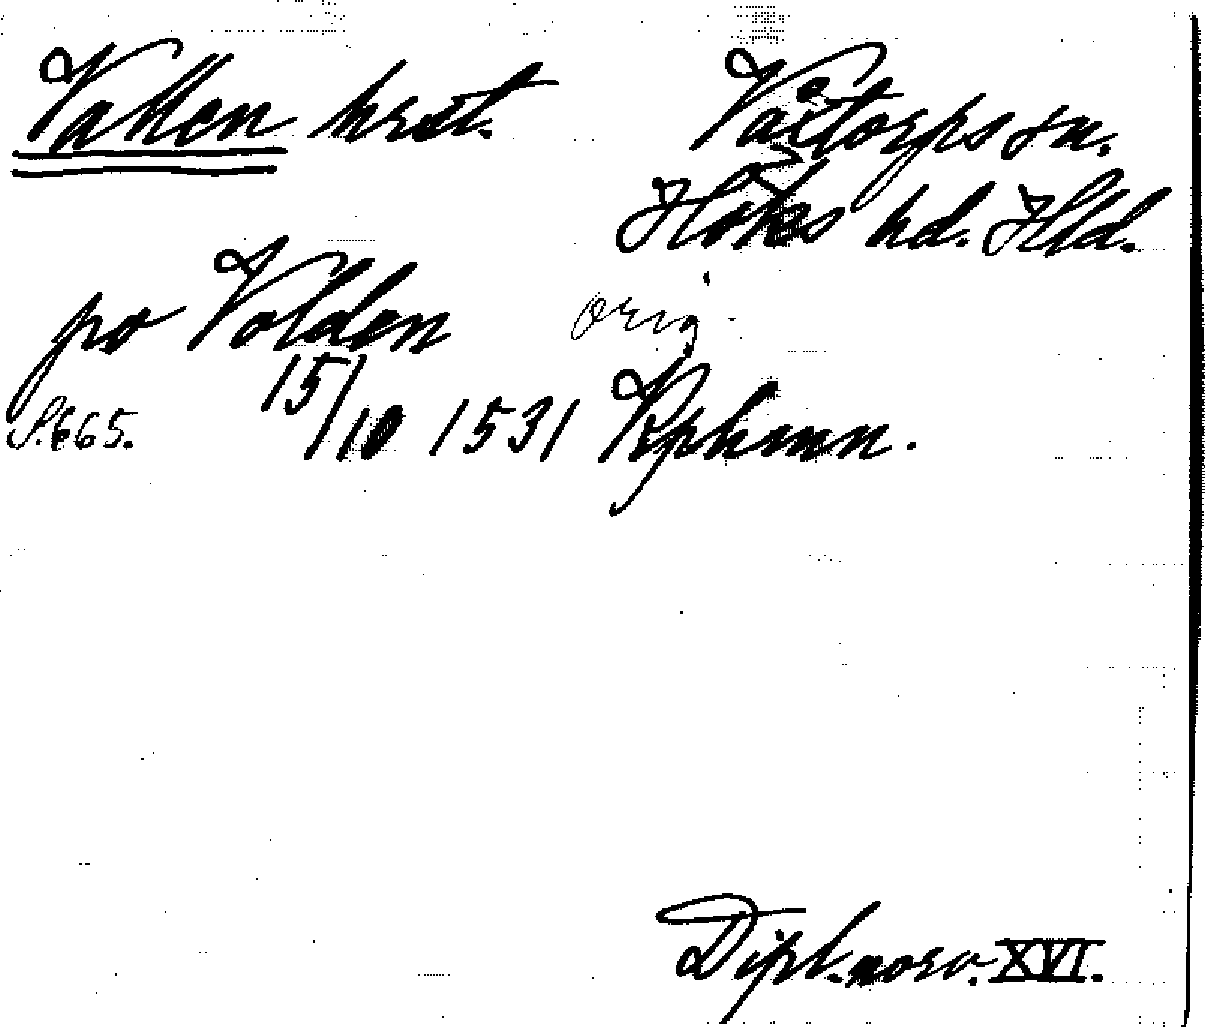 Vallen herrt. Våxtorps sn.
Höks hd. Hld.
po Volden orig.
S. 665. 15/10 1531 Kphmn.
Dipl. norv. XVI.